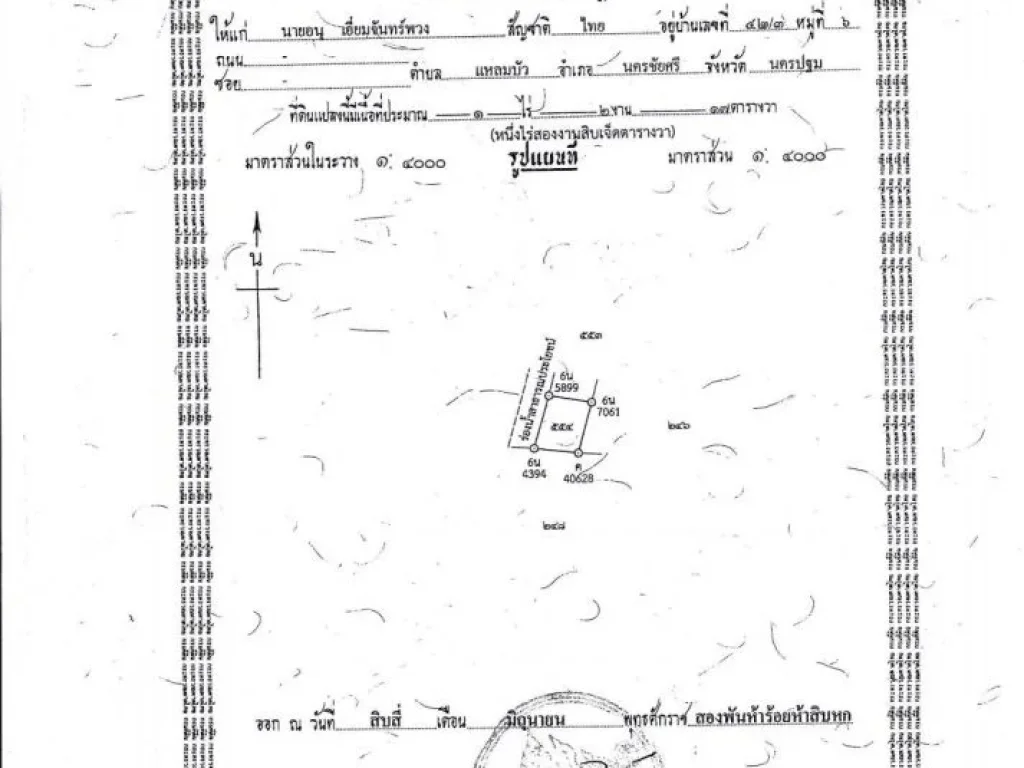 ให้แก่ นายอนุ เอี่ยมจันทร์พวง สัญชาติ ไทย อยู่บ้านเลขที่ ๔๒/๓ หมู่ที่ ๖
ถนน -
ซอย - ตำบล แหลมบัว อำเภอ นครชัยศรี จังหวัด นครปฐม
ที่ดินแปลงนี้มีเนื้อที่ประมาณ ๑ ไร่ ๒ งาน ๑๗ ตารางวา
(หนึ่งไร่สองงานสิบเจ็ดตารางวา)
มาตราส่วนในระวาง ๑: ๔๐๐๐ รูปแผนที่ มาตราส่วน ๑: ๔๐๐๐
น
๕๕๓
ร่องน้ำสาธารณประโยชน์
6น
5899
6น
7061
๕๕๔
๒๔๖
6น
4394
ค
40628
๒๔๘
ออก ณ วันที่ สิบสี่ เดือน มิถุนายน พุทธศักราช สองพันห้าร้อยห้าสิบหก